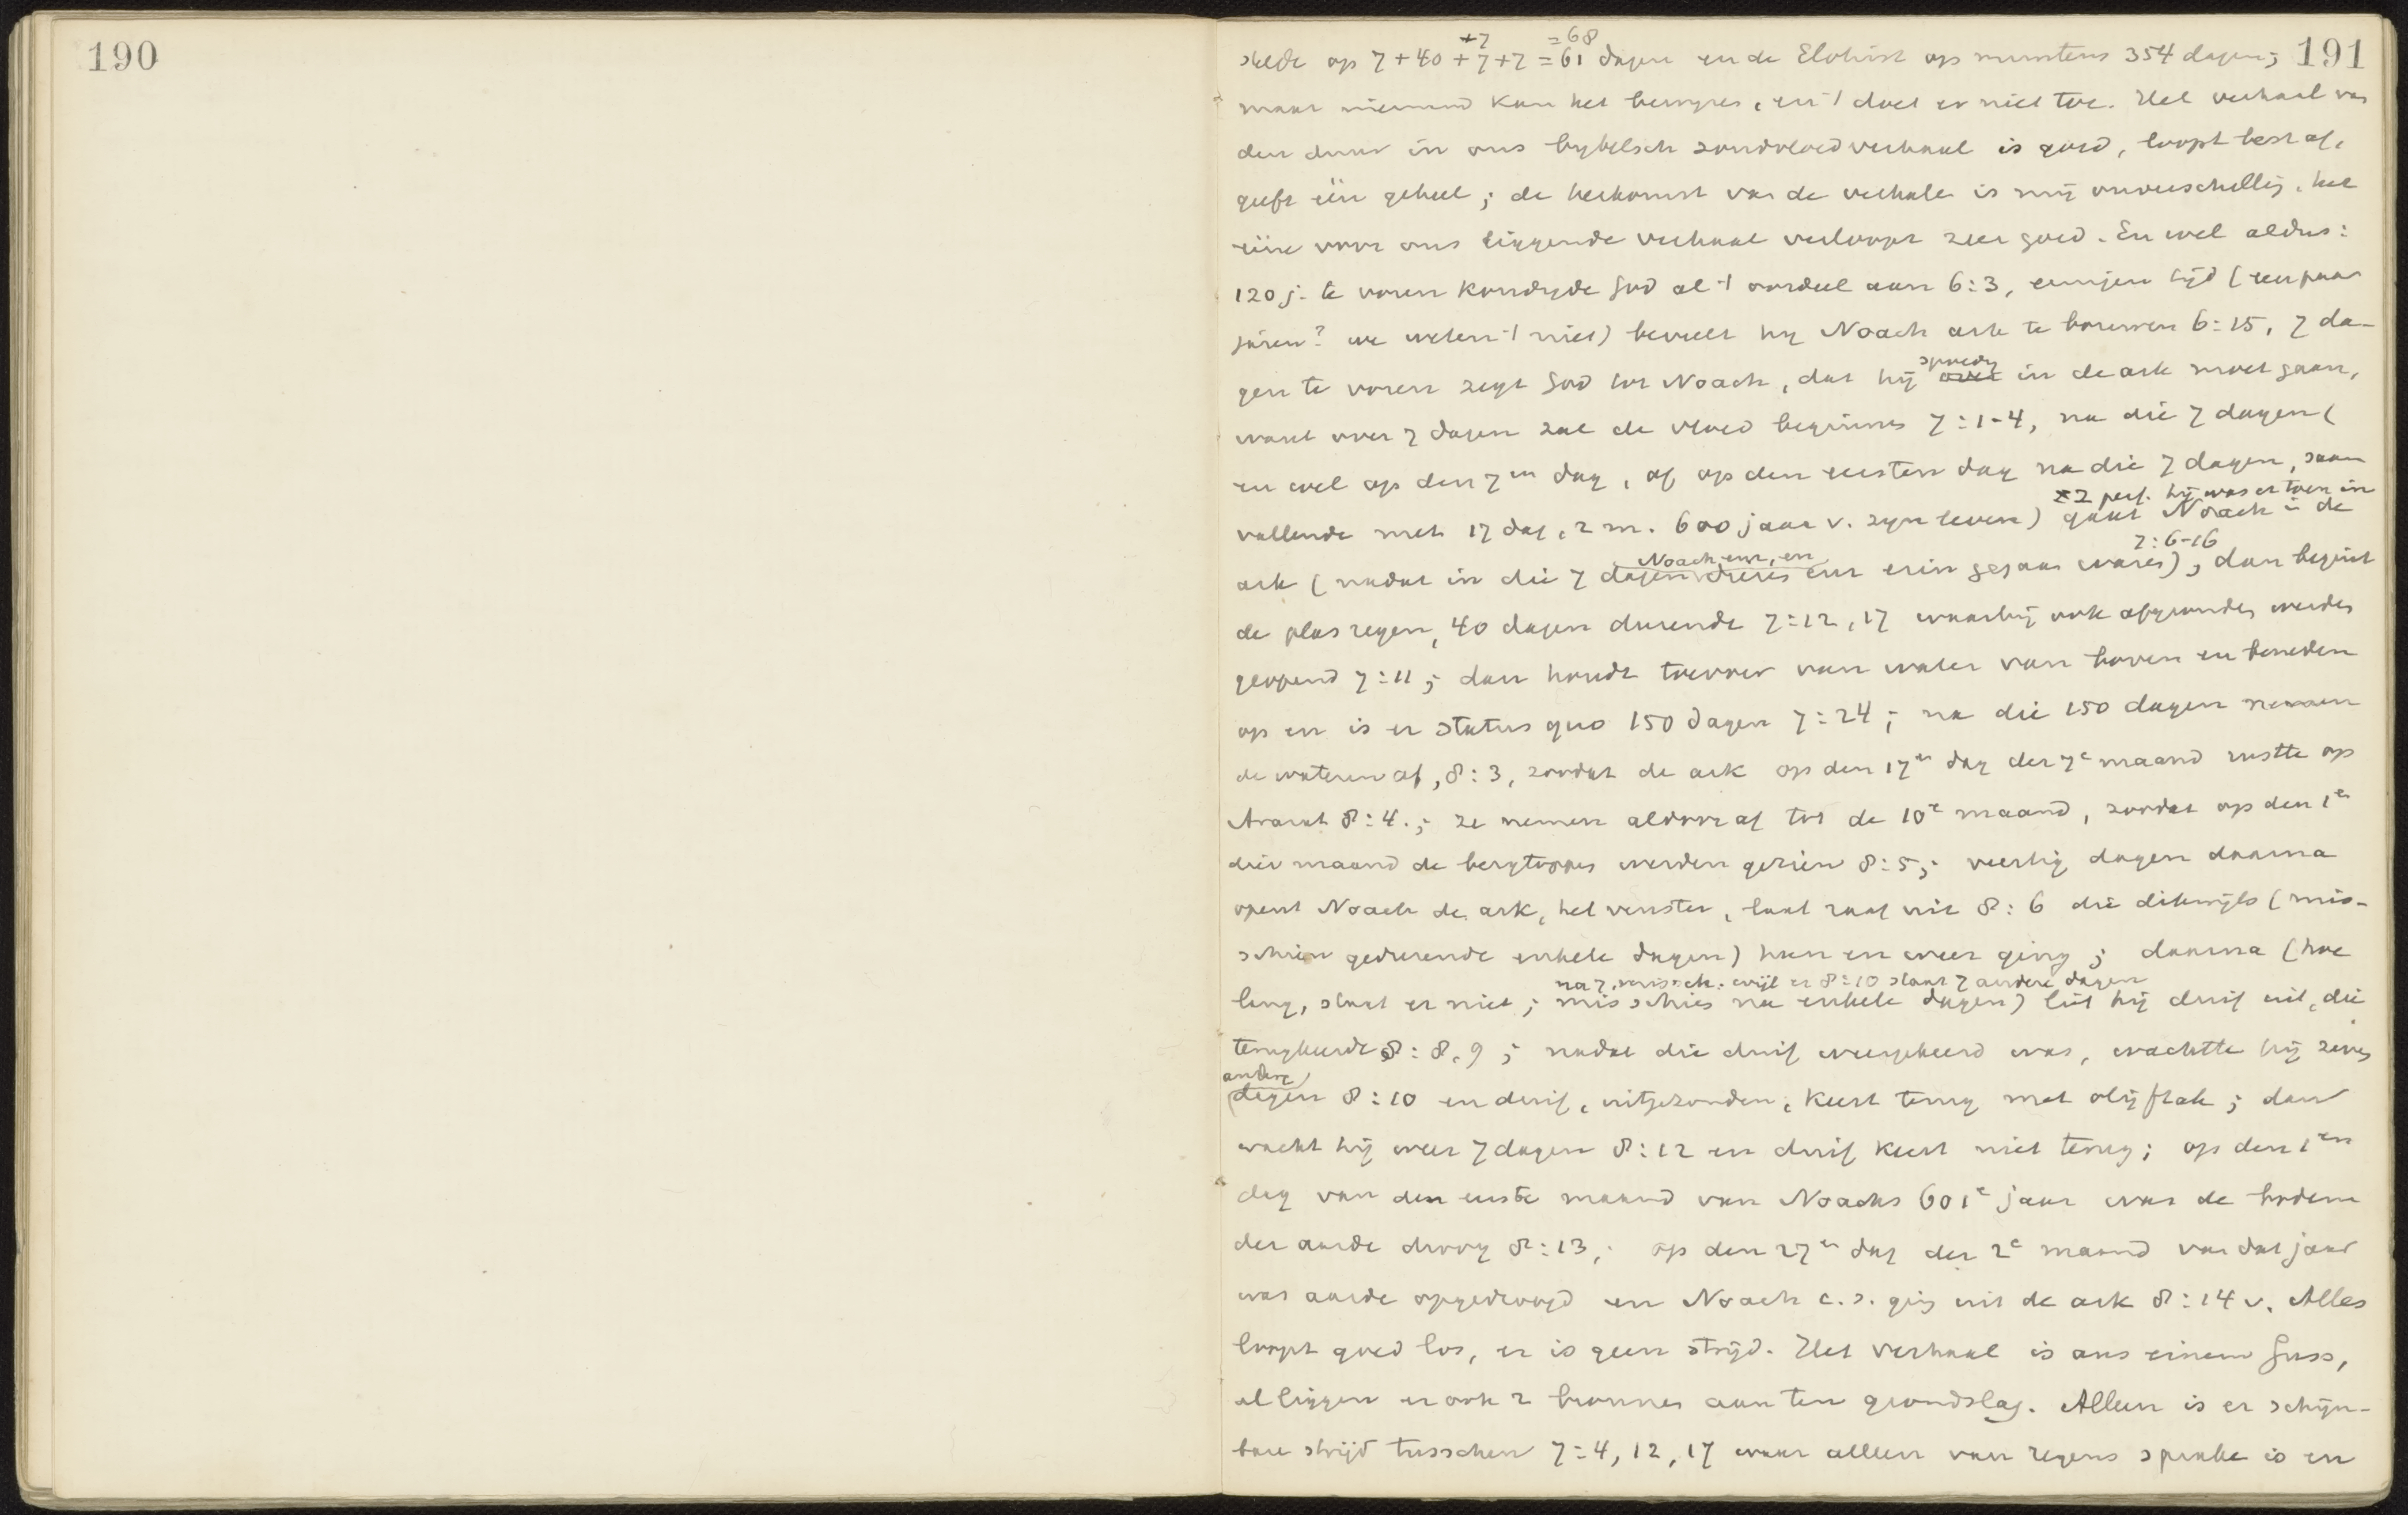 190
191
+7 =68
stelde op 7 + 40 + 7 + 7 = 61 dagen en de Elohist op minstens 354 dagen;
maar niemand kan het bewijzen, en 't doet er niet toe. Het verhaal van
den duur in ons bybelsch zondvloedverhaal is goed, loopt best af,
geeft één geheel; de herkomst van de verhalen is mij onverschillig, het
ééne voor ons liggende verhaal verloopt zeer goed. En wel aldus:
120 j. te voren kondigde God al 't oordeel aan 6:3, eenigen tijd (een paar
jaren? we weten 't niet) beveelt hy Noach ark te bouwen 6:15, 7 da-
gen te voren zegt God tot Noach, dat hij spoedig in de ark moet gaan,
want over 7 dagen zal de vloed beginnen 7:1-4, na die 7 dagen (
en wel op den 7en dag, of op den eersten dag na die 7 dagen, saam
vallende met 17 dag, 2 m. 600 jaar v. zyn leven) gaat Noach in de
± 2 perf. hij was er toen in
ark (nadat in die 7 dagen dieren enz erin gegaan waren), dan begint
Noach enz, en
7:6-16
de plasregen, 40 dagen durende 7:12, 17 waarbij ook afgronden werden
geopend 7:11; dan houdt toevoer van water van boven en beneden
op en is er status quo 150 dagen 7:24; na die 150 dagen nemen
de wateren af, 8:3, zoodat de ark op den 17en dag der 7e maand rustte op
Ararat 8:4.; ze nemen aldoor af tot de 10e maand, zoodat op den 1en
dier maand de bergtoppen werden gezien 8:5; veertig dagen daarna
opent Noach de ark, het venster, laat raaf uit 8:6 die dikwijls (mis-
schien gedurende enkele dagen) heen en weer ging; daarna (hoe
lang, staat er niet; misschien na enkele dagen) liet hij duif uit, die
na 7, missch. wijl er 8:10 staat 7 andere dagen
terugkeerde 8:8,9; nadat die duif weergekeerd was, wachtte hij zeven
andere
dagen 8:10 en duif, uitgezonden, keert terug met olijftak; dan
wacht hij weer 7 dagen 8:12 en duif keert niet terug; op den 1en
dag van den eerste maand van Noachs 601e jaar was de bodem
der aarde droog 8:13; op den 27en dag der 2e maand van dat jaar
was aarde opgedroogd en Noach c.s. ging uit de ark 8:14 v. Alles
loopt goed los, er is geen strijd. Het verhaal is aus einem Guss,
al liggen er ook 2 bronnen aan ten grondslag. Alleen is er schijn-
bare strijd tusschen 7:4, 12, 17 waar alleen van regens sprake is en